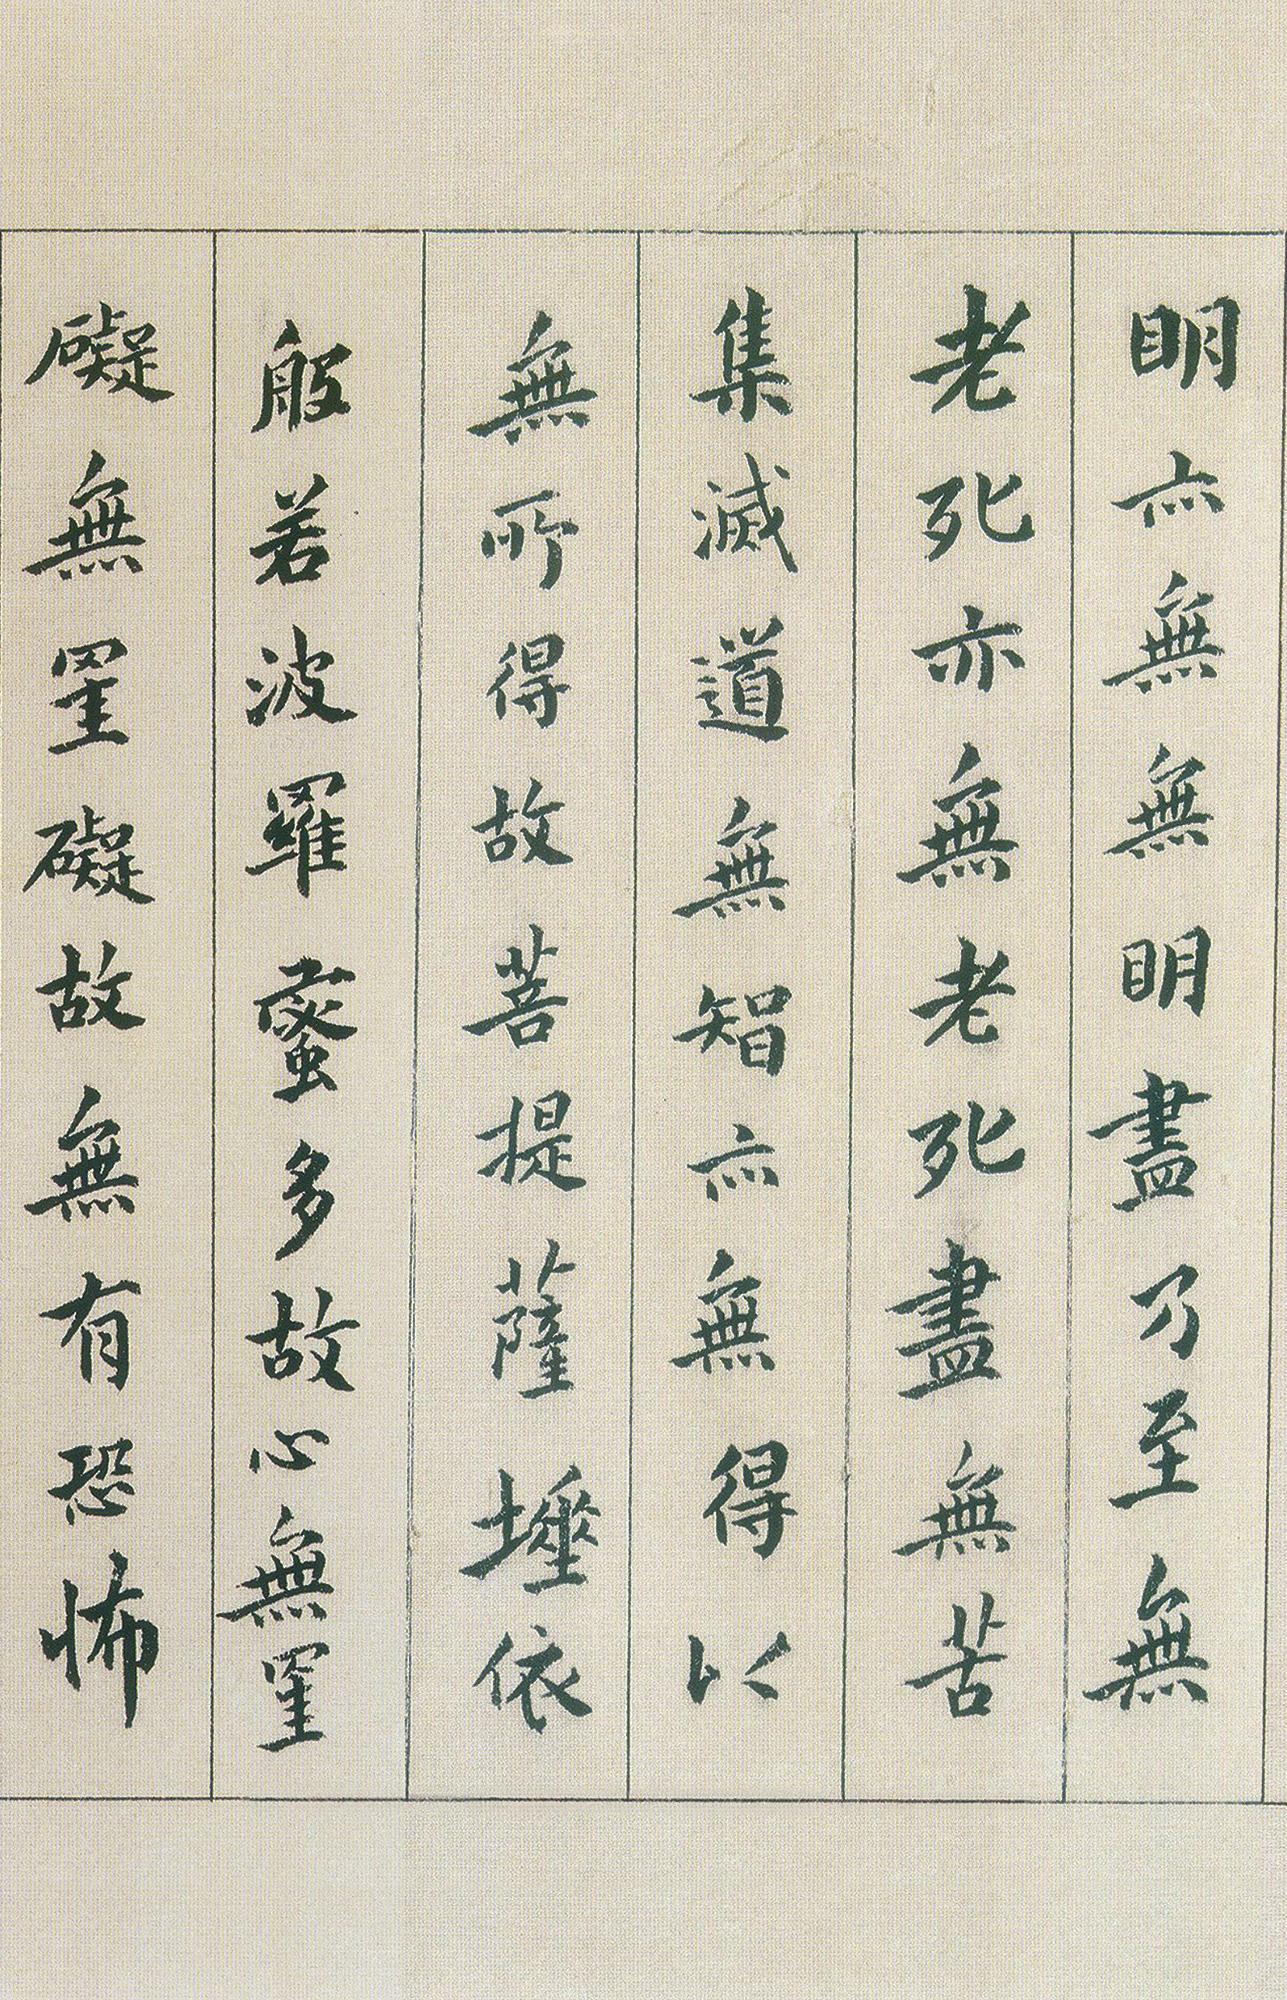 明亦無無明盡乃至無
老死亦無老死盡無苦
集滅道無智亦無得以
無所得故菩提薩埵依
般若波羅蜜多故心無罣
礙無罣礙故無有恐怖